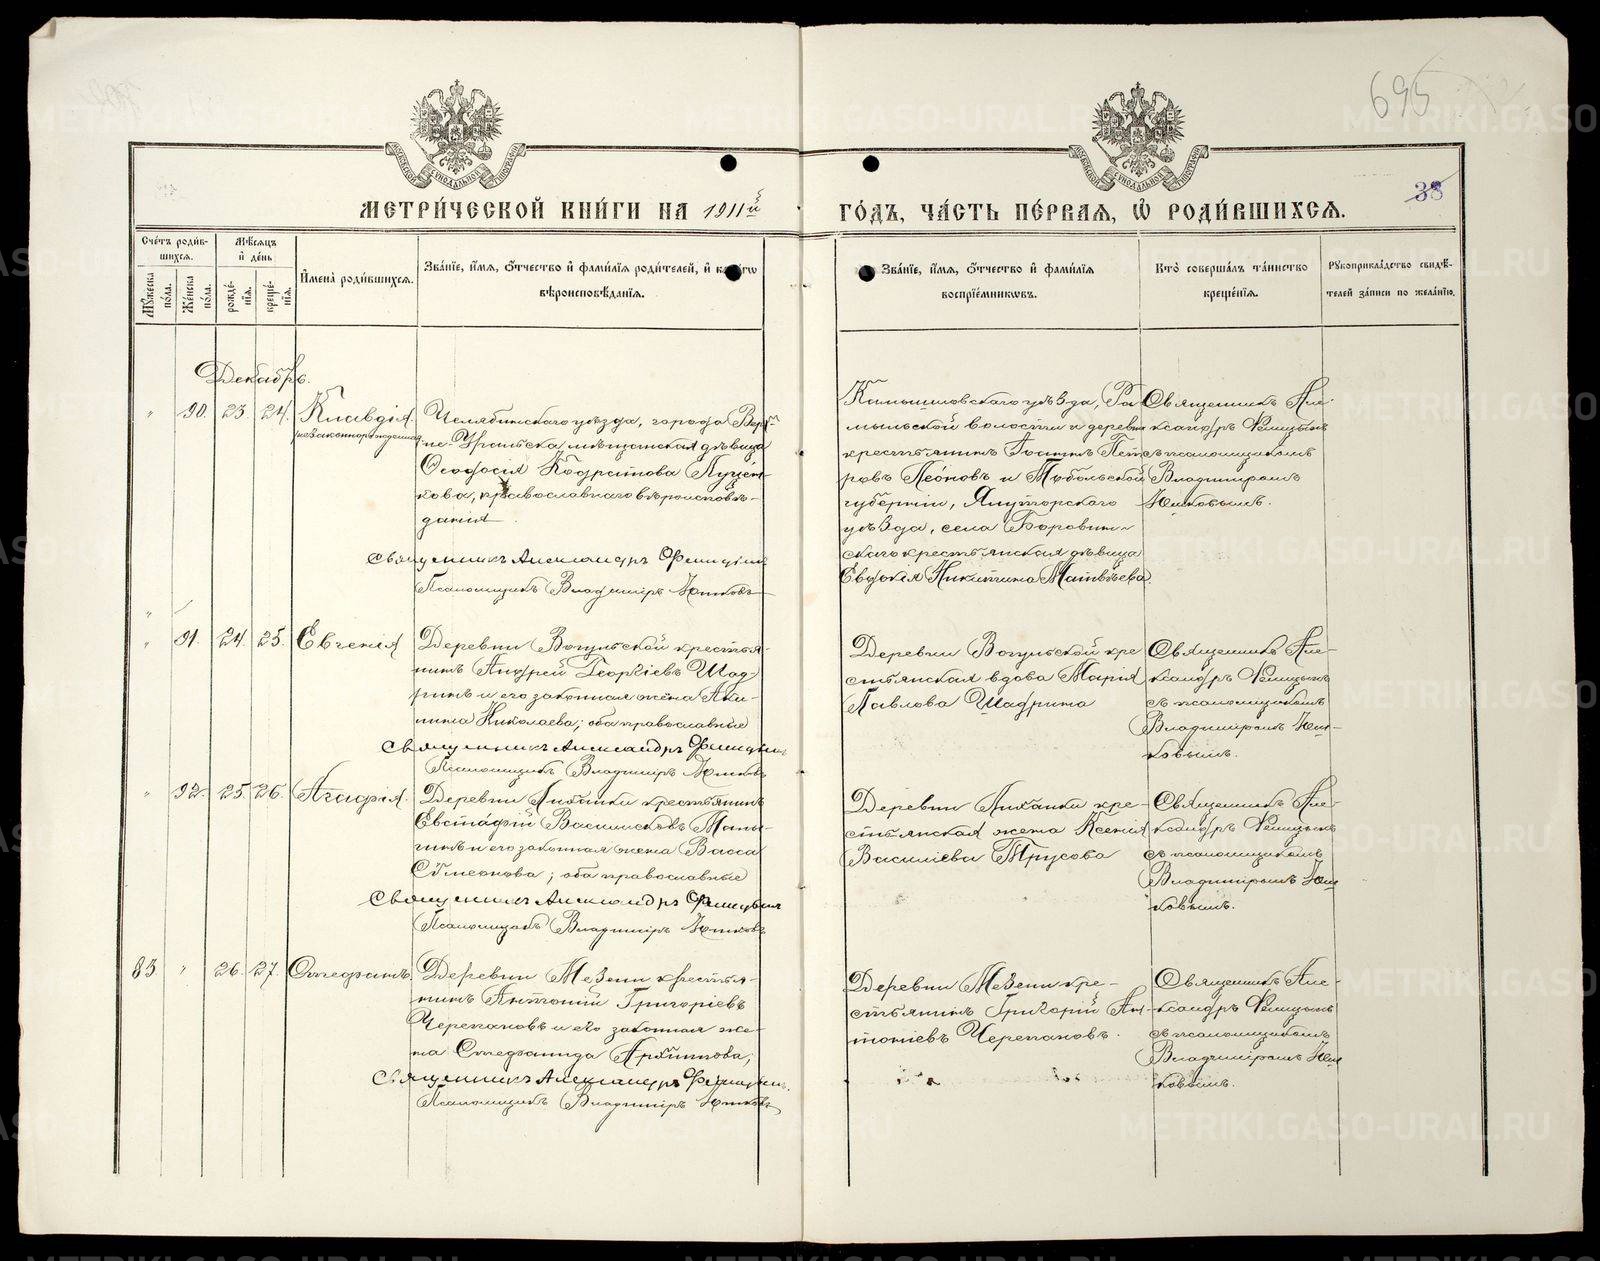 695
38
МЕТРИ́ЧЕСКОЙ КНИ́ГИ НА 1911й
ГО́ДЪ, ЧА́СТЬ ПЕ́РВАЯ, Ѡ РОДИ́ВШИХСЯ.
Сче́тъ роди́в-
шихся.
Мѣ́сяцъ
и҆ де́нь
Мꙋ́жеска
по́ла.
Же́нска
по́ла.
рожде́-
нїя.
креще́-
нїя.
И҆мена̀ роди́вшихся.
Зва́нїе, и҆́мя, ѻ҆́тчество и҆ фами́лїя роди́телей, и҆
вѣроисповѣ́данїя.
Зва́нїе, и҆́мя, ѻ҆́тчество и҆ фами́лїя
воспрїе́мникѡвъ.
Кто̀ соверша́лъ та́инство
креще́нїя.
Рꙋкоприкла́дство свидѣ́-
телей за́писи по жела́нїю.
Декабрь.
" 90. 23. 24. Клавдія
(незаконнорожденная)
Челябинскаго уѣзда, города Верх-
не-Уральска мѣщанская дѣвица
Ѳеодосія
кова, православнаго вѣроисповѣ-
данія
Священникъ Александръ
Псаломщикъ Владиміръ Юшковъ
Камышловскаго уѣзда,
волости и деревни
крестьянинъ Іоаннъ Пет-
ровъ Леоновъ и Тобольской
губерніи, Ялуторскаго
уѣзда, села
скаго крестьянская дѣвица
Евдокія Никитина Матвѣева.
Священникъ Але-
ксандръ
съ псаломщикомъ
Владиміромъ
Юшковымъ.
" 91. 24. 25. Евгенія
Деревни Вогульской крестья-
нинъ Андрей Георгіевъ Шад-
ринъ и его законная жена Аки-
лина Николаева; оба православные
Священникъ Александръ
Псаломщикъ Владиміръ Юшковъ
Деревни Вогульской кре-
стьянская вдова Марія
Павлова Шадрина
Священникъ Але-
ксандръ
съ псаломщикомъ
Владиміромъ Юш-
ковымъ.
" 92. 25. 26. Агафія.
Деревни крестьянинъ
Евстафій Васильевъ
и его законная жена Васса
Сѵмеонова; оба православные
Священникъ Александръ
Псаломщикъ Владиміръ Юшковъ
Деревни кре-
стьянская жена Ксенія
Василіева Трусова
Священникъ Але-
ксандръ
съ псаломщикомъ
Владиміромъ Юш-
ковымъ.
83 " 26. 27. Стефанъ.
Деревни Мезени крестья-
нинъ Антоній Григоріевъ
Черепановъ и его законная же-
на Стефанида Архипова;
Священникъ Александръ
Псаломщикъ Владиміръ Юшковъ
Деревни Мезени кре-
стьянинъ Григорій Ан-
тоніевъ Черепановъ.
Священникъ Але-
ксандръ
съ псаломщикомъ
Владиміромъ Юш-
ковымъ.
METRIKI.GASO-URAL.RU